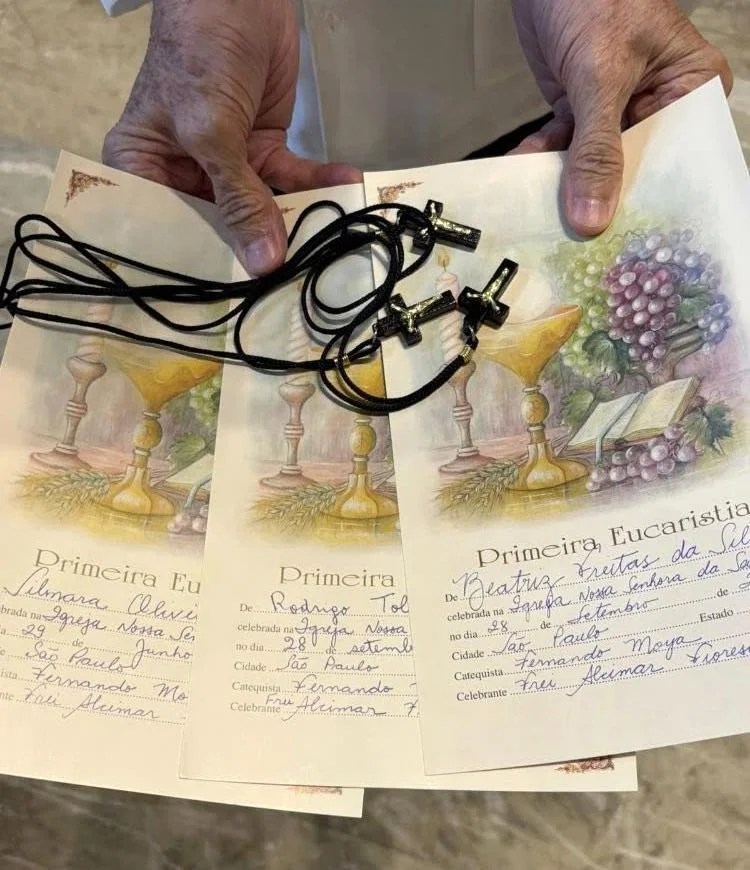 Primeira Eu
Silmara Olivei
ebrada na Igreja Nossa Sen
ia 29 de Junho
São Paulo
ista Fernando Mo
nte Frei Alcimar
Primeira
De Rodrigo Tol
celebrada na Igreja Nossa
no dia 28 de setemb
Cidade São Paulo
Catequista Fernando
Celebrante Frei Alcimar F
Primeira Eucaristia
De Beatriz Freitas da Sil
celebrada na Igreja Nossa Senhora da Sa
no dia 28 de Setembro de
Cidade São Paulo Estado
Catequista Fernando Moya
Celebrante Frei Alcimar Fiores